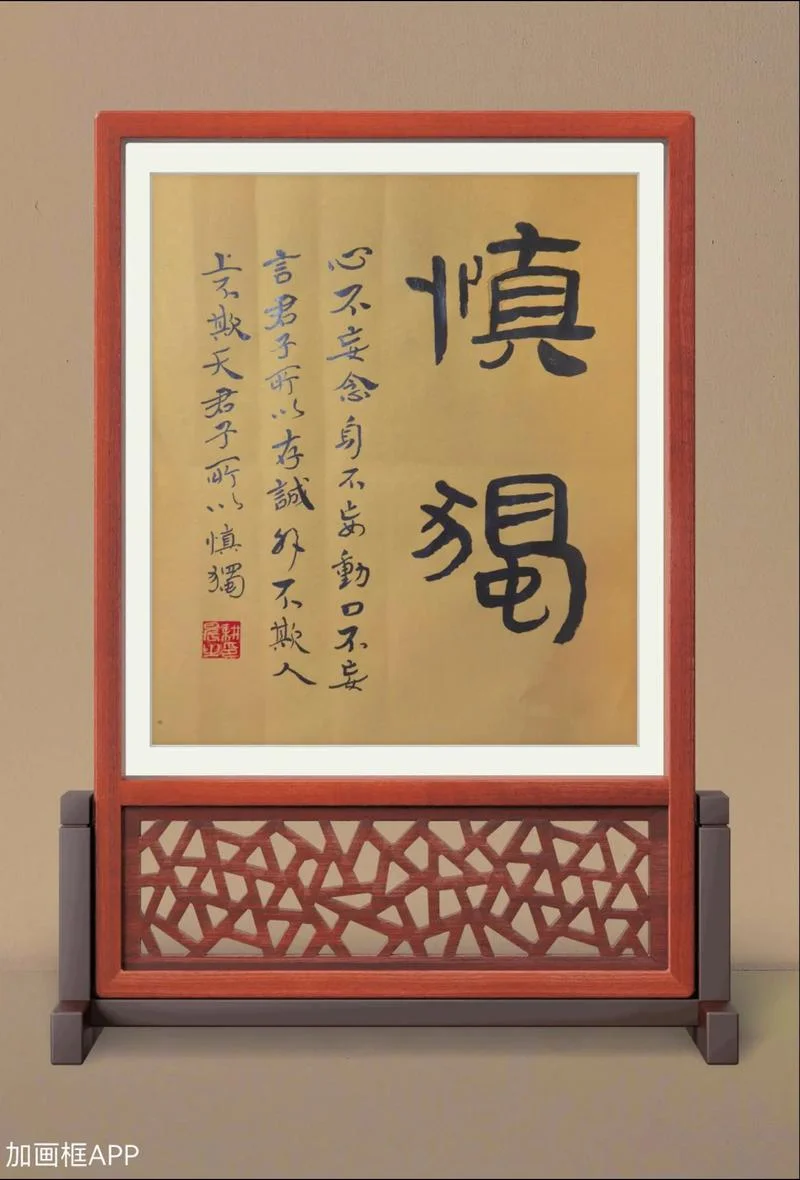 慎
獨
心不妄念身不妄動口不妄
言君子所以存誠外不欺人
上不欺天君子所以慎獨
加画框APP